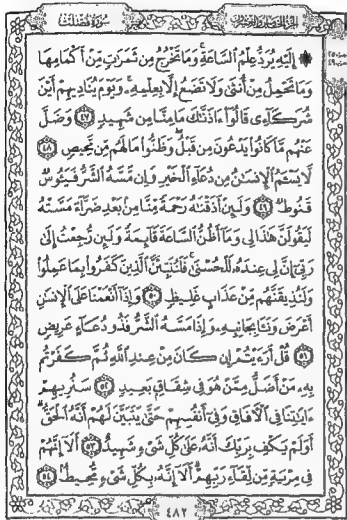 الجزء الخامس والعشرون سورة فصلت
۞ إِلَيْهِ يُرَدُّ عِلْمُ السَّاعَةِ ۚ وَمَا تَخْرُجُ مِن ثَمَرَٰتٍ مِّنْ أَكْمَامِهَا
وَمَا تَحْمِلُ مِنْ أُنثَىٰ وَلَا تَضَعُ إِلَّا بِعِلْمِهِۦ ۚ وَيَوْمَ يُنَادِيهِمْ أَيْنَ
شُرَكَآءِى قَالُوٓا۟ ءَاذَنَّٰكَ مَا مِنَّا مِن شَهِيدٍ ﴿٤٧﴾ وَضَلَّ
عَنْهُم مَّا كَانُوا۟ يَدْعُونَ مِن قَبْلُ ۖ وَظَنُّوا۟ مَا لَهُم مِّن مَّحِيصٍ ﴿٤٨﴾
لَّا يَسْـَٔمُ الْإِنسَٰنُ مِن دُعَآءِ الْخَيْرِ وَإِن مَّسَّهُ الشَّرُّ فَيَـُٔوسٌ
قَنُوطٌ ﴿٤٩﴾ وَلَئِنْ أَذَقْنَٰهُ رَحْمَةً مِّنَّا مِنۢ بَعْدِ ضَرَّآءَ مَسَّتْهُ
لَيَقُولَنَّ هَٰذَا لِى وَمَآ أَظُنُّ السَّاعَةَ قَآئِمَةً وَلَئِن رُّجِعْتُ إِلَىٰ
رَبِّىٓ إِنَّ لِى عِندَهُۥ لَلْحُسْنَىٰ ۚ فَلَنُنَبِّئَنَّ الَّذِينَ كَفَرُوا۟ بِمَا عَمِلُوا۟
وَلَنُذِيقَنَّهُم مِّنْ عَذَابٍ غَلِيظٍ ﴿٥٠﴾ وَإِذَآ أَنْعَمْنَا عَلَى الْإِنسَٰنِ
أَعْرَضَ وَنَـَٔا بِجَانِبِهِۦ وَإِذَا مَسَّهُ الشَّرُّ فَذُو دُعَآءٍ عَرِيضٍ
﴿٥١﴾ قُلْ أَرَءَيْتُمْ إِن كَانَ مِنْ عِندِ اللَّهِ ثُمَّ كَفَرْتُم
بِهِۦ مَنْ أَضَلُّ مِمَّنْ هُوَ فِى شِقَاقٍۭ بَعِيدٍ ﴿٥٢﴾ سَنُرِيهِمْ
ءَايَٰتِنَا فِى الْـَٔافَاقِ وَفِىٓ أَنفُسِهِمْ حَتَّىٰ يَتَبَيَّنَ لَهُمْ أَنَّهُ الْحَقُّ ۗ
أَوَلَمْ يَكْفِ بِرَبِّكَ أَنَّهُۥ عَلَىٰ كُلِّ شَىْءٍ شَهِيدٌ ﴿٥٣﴾ أَلَآ إِنَّهُمْ
فِى مِرْيَةٍ مِّن لِّقَآءِ رَبِّهِمْ ۗ أَلَآ إِنَّهُۥ بِكُلِّ شَىْءٍ مُّحِيطٌۢ ﴿٥٤﴾
٤٨٢